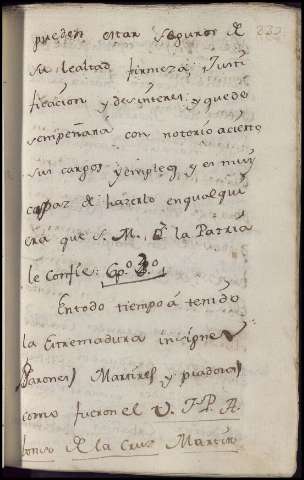 pueden estar seguros de
su lealtad firmeza, Justi
ficacion, y desinteres, y que de
sempeñará con notorio acierto
sus cargos y empleos, y es muy
capaz de hazerlo en qualqui
era que S. M., ô la Patria
le Confie: Cp.º 3.º
En todo tiempo á tenido
la Extremadura insignes
Varones Martires, y piadosos
como fueron el V. J. P. A.
lonso de la Cruz Martir